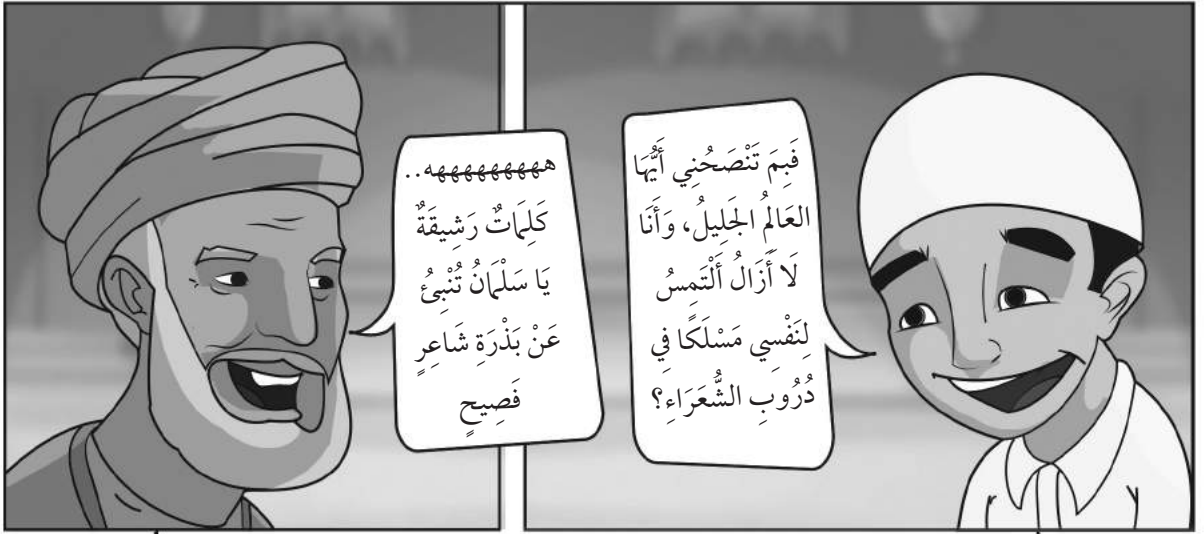 فَبِمَ تَنْصَحُنِي أَيُّهَا
العَالِمُ الجَلِيلُ، وَأَنَا
لَا أَزَالُ أَلْتَمِسُ
لِنَفْسِي مَسْلَكًا فِي
دُرُوبِ الشُّعَرَاءِ؟
هههههههههه..
كَلِمَاتٌ رَشِيقَةٌ
يَا سَلْمَانُ تُنْبِئُ
عَنْ بَذْرَةِ شَاعِرٍ
فَصِيحٍ